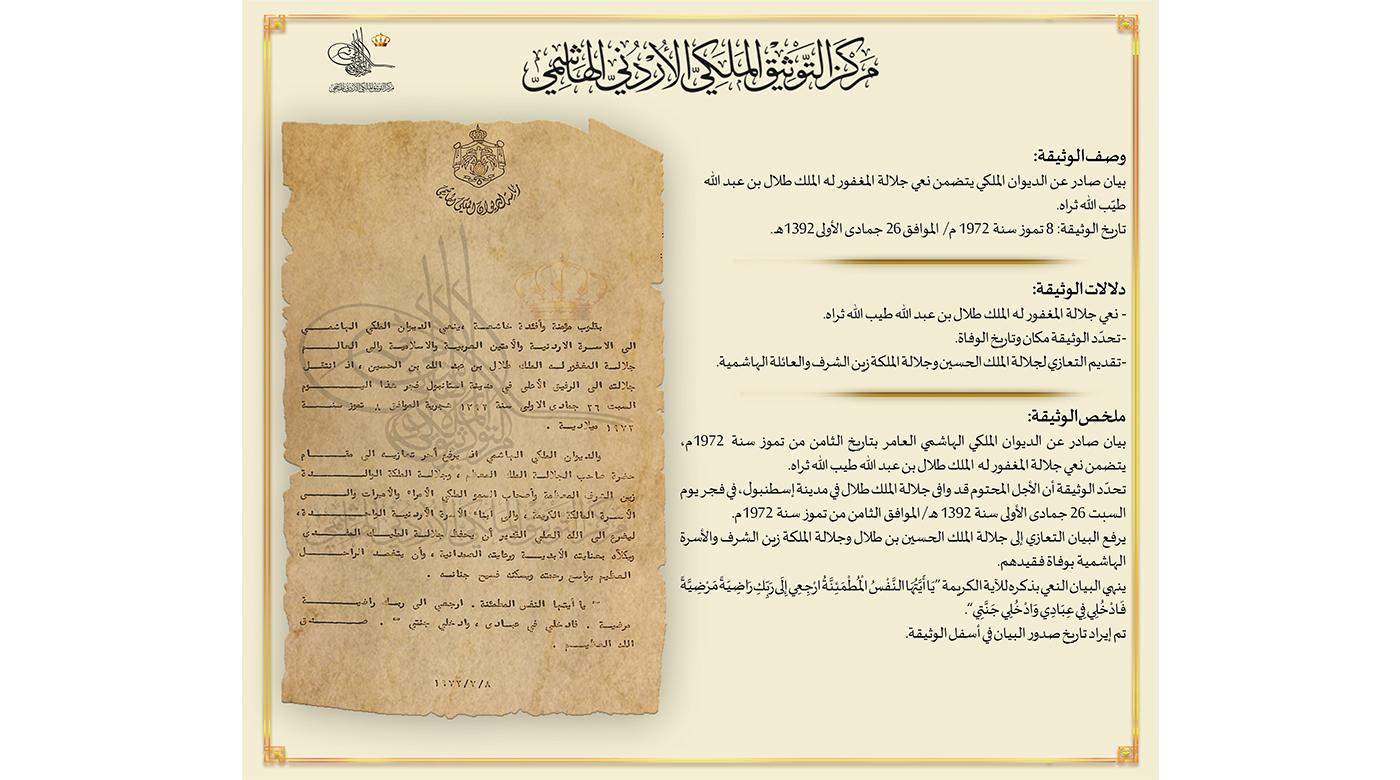 مركز التوثيق الملكي الأردني الهاشمي
مركز التوثيق الملكي الأردني الهاشمي
وصف الوثيقة:
بيان صادر عن الديوان الملكي يتضمن نعي جلالة المغفور له الملك طلال بن عبد الله
طيّب الله ثراه.
تاريخ الوثيقة: 8 تموز سنة 1972 م/ الموافق 26 جمادى الأولى 1392هـ.
دلالات الوثيقة:
- نعي جلالة المغفور له الملك طلال بن عبد الله طيب الله ثراه.
-تحدّد الوثيقة مكان وتاريخ الوفاة.
-تقديم التعازي لجلالة الملك الحسين وجلالة الملكة زين الشرف والعائلة الهاشمية.
ملخص الوثيقة:
بيان صادر عن الديوان الملكي الهاشمي العامر بتاريخ الثامن من تموز سنة 1972م،
يتضمن نعي جلالة المغفور له الملك طلال بن عبد الله طيب الله ثراه.
تحدّد الوثيقة أن الأجل المحتوم قد وافى جلالة الملك طلال في مدينة إسطنبول، في فجر يوم
السبت 26 جمادى الأولى سنة 1392 هـ/ الموافق الثامن من تموز سنة 1972م.
يرفع البيان التعازي إلى جلالة الملك الحسين بن طلال وجلالة الملكة زين الشرف والأسرة
الهاشمية بوفاة فقيدهم.
ينهي البيان النعي بذكره للآية الكريمة "يَا أَيَّتُهَا النَّفْسُ الْمُطْمَئِنَّةُ ارْجِعِي إِلَى رَبِّكِ رَاضِيَةً مَرْضِيَّةً
فَادْخُلِي فِي عِبَادِي وَادْخُلِي جَنَّتِي".
تم إيراد تاريخ صدور البيان في أسفل الوثيقة.
رئاسة الديوان الملكي الهاشمي
بقلوب مؤمنة وأفئدة خاشعة ، ينعى الديوان الملكي الهاشمي
الى الاسرة الاردنية والأمتين العربية والاسلامية والى العالم
جلالة المغفور له الملك طلال بن عبد الله بن الحسين ، اذ انتقل
جلالته الى الرفيق الأعلى في مدينة استانبول فجر هذا اليوم
السبت ٢٦ جمادى الاولى سنة ١٣٩٢ هجرية الموافق ٨ تموز سنة
١٩٧٢ ميلادية .
والديوان الملكي الهاشمي اذ يرفع أحر تعازيه الى مقام
حضرة صاحب الجلالة الملك المعظم ، وجلالة الملكة الوالدة
زين الشرف المعظمة وأصحاب السمو الملكي الأمراء والأميرات والى
الأسرة المالكة الكريمة ، والى أبناء الأسرة الأردنية الواحدة ،
ليضرع الى الله العلي القدير أن يحفظ جلالة المليك المفدى
ويكلأه بعنايته الأبدية ورعايته الصمدانية ، وأن يتغمد الراحل
العظيم بواسع رحمته ويسكنه فسيح جنانه .
" يا أيتها النفس المطمئنة . ارجعي الى ربك راضية
مرضية . فادخلي في عبادى ، وادخلي جنتي " . صدق
الله العظيم .
١٩٧٢/٧/٨